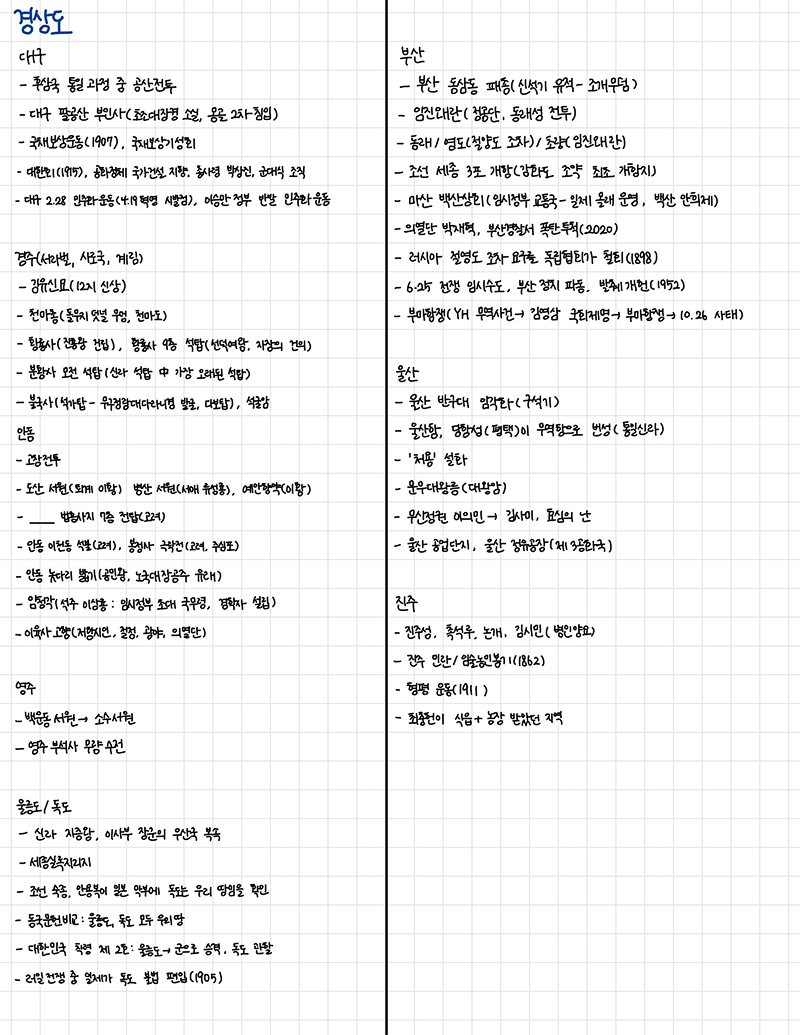 경상도
대구
- 후삼국 통일 과정 중 공산전투
- 대구 팔공산 부인사(초조대장경 소실, 몽골 2차 침입)
- 국채보상운동(1907), 국채보상기성회
- 대한광복회(1915), 공화정체 국가건설 지향, 총사령 박상진, 군대식 조직
- 대구 2.28 민주화운동(4.19혁명 시발점), 이승만 정부 반발 민주화 운동
경주(서라벌, 사로국, 계림)
- 김유신묘(12지 신상)
- 천마총(돌무지 덧널 무덤, 천마도)
- 황룡사(진흥왕 건립), 황룡사 9층 석탑(선덕여왕, 자장의 건의)
- 분황사 모전 석탑(신라 석탑 中 가장 오래된 석탑)
- 불국사(석가탑 - 무구정광대다라니경 발굴, 다보탑), 석굴암
안동
- 고창전투
- 도산 서원(퇴계 이황) 병산 서원(서애 유성룡), 예안향약(이황)
- ____ 법흥사지 7층 전탑(고려)
- 안동 이천동 석불(고려), 봉정사 극락전(고려, 주심포)
- 안동 놋다리 밟기(공민왕, 노국대장공주 유래)
- 임청각(석주 이상룡 : 임시정부 초대 국무령, 경학사 설립)
- 이육사 고향(저항시인, 절정, 광야, 의열단)
영주
- 백운동 서원 → 소수서원
- 영주 부석사 무량 수전
울릉도/독도
- 신라 지증왕, 이사부 장군의 우산국 복속
- 세종실록지리지
- 조선 숙종, 안용복이 일본 막부에 독도는 우리 땅임을 확인
- 동국문헌비고 : 울릉도, 독도 모두 우리땅
- 대한민국 칙령 제 2호 : 울릉도 → 군으로 승격, 독도 관할
- 러일전쟁 중 일제가 독도 불법 편입(1905)
부산
- 부산 동삼동 패총(신석기 유적 - 조개무덤)
- 임진왜란(정공단, 동래성 전투)
- 동래/영도(절양도 조차)/동래(임진왜란)
- 조선 세종 3포 개항(강화도 조약 최초 개항지)
- 마산 백산상회(임시정부 교통국 - 일제 몰래 운영, 백산 안희제)
- 의열단 박재혁, 부산경찰서 폭탄투척(2020)
- 러시아 절영도 조차 요구를 독립협회가 철회(1898)
- 6.25 전쟁 임시수도, 부산 정치 파동, 발췌개헌(1952)
- 부마항쟁(YH 무역사건 → 김영삼 국회제명 → 부마항쟁 → 10.26 사태)
울산
- 울산 반구대 암각화(구석기)
- 울산항, 당항성(평택)이 무역항으로 번성(통일신라)
- '처용' 설화
- 문무대왕릉(대왕암)
- 무신정권 이의민 → 김사미, 효심의 난
- 울산 공업단지, 울산 정유공장(제3공화국)
진주
- 진주성, 촉석루, 논개, 김시민(병인양요)
- 진주 민란/임술농민봉기(1862)
- 형평 운동(1911)
- 최충헌이 식읍+농장 받았던 지역